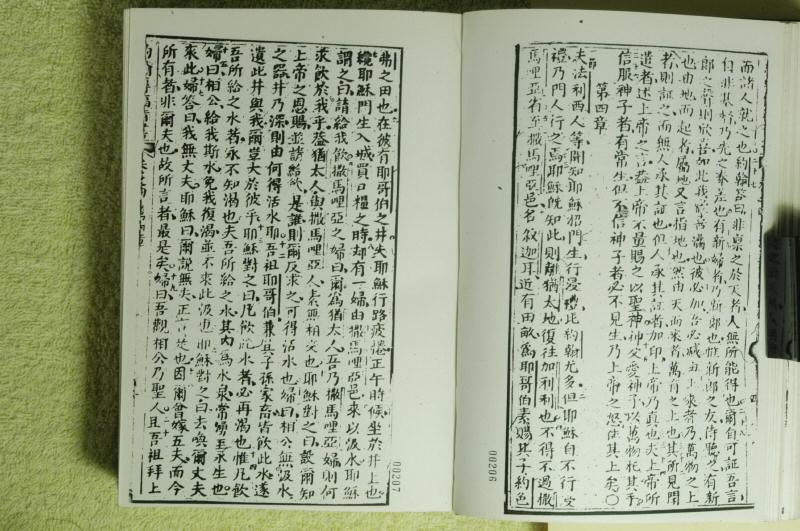 而諸人就之也約翰答曰非稟之於天者人無所能得也爾自可証吾言
曰非基督乃先之奉差也有新婦者乃新郎也惟新郎之友侍聽者有新
郎之聲則欣喜如此我
也由地而起者屬地又言指地也然由天而來者萬有之上也其所見聞
者則証之而無人承其証也但人承其証者加印上帝乃真也夫上帝所
遣者述上帝之言蓋上帝不量賜之以聖神神父愛神子以萬物托其手
信服神子者有常生但不信神子者必不見生乃上帝之怒住其上矣〇
第四章
夫法利西人等聞知耶穌招門生行浸禮比約翰尤多但耶穌自不行受
禮乃門人行之焉耶穌既知此則離猶太地復往加利利也不得不過撒
馬哩亞省至撒馬哩亞邑名敘迦耳近有田畝為耶哥伯素賜其子約色
00206
弗之田也在彼有耶哥伯之井夫耶穌行路疲倦正午時候坐於井上也
纔耶穌門生入城買日糧之時却有一婦由撒馬哩亞邑來以汲水耶穌
謂之曰請給我飲撒馬哩亞之婦曰爾為猶太人吾乃撒馬哩亞婦則何
求飲於我乎蓋猶太人與撒馬哩亞人素無相交也耶穌對之曰設爾知
上帝之恩賜並請給飲是誰則爾反求之可得活水也婦曰相公無汲水
之器井乃深則由何得活水耶吾祖耶哥伯兼其子孫家畜皆飲此水遂
遺此井與我爾豈大於彼乎耶穌對之曰凡飲此水者必再渴也惟凡飲
吾所給之水者永不知渴也夫吾所給之水其內為水泉常湧至永生也
婦曰相公給我斯水免我復渴並不來此汲也耶穌對之曰去喚爾丈夫
來此婦答曰我無丈夫耶穌曰爾說無夫正言是也因爾曾嫁五夫而今
所有者非爾夫也故所言者最是矣婦曰吾觀相公乃聖人且吾祖拜上
00207